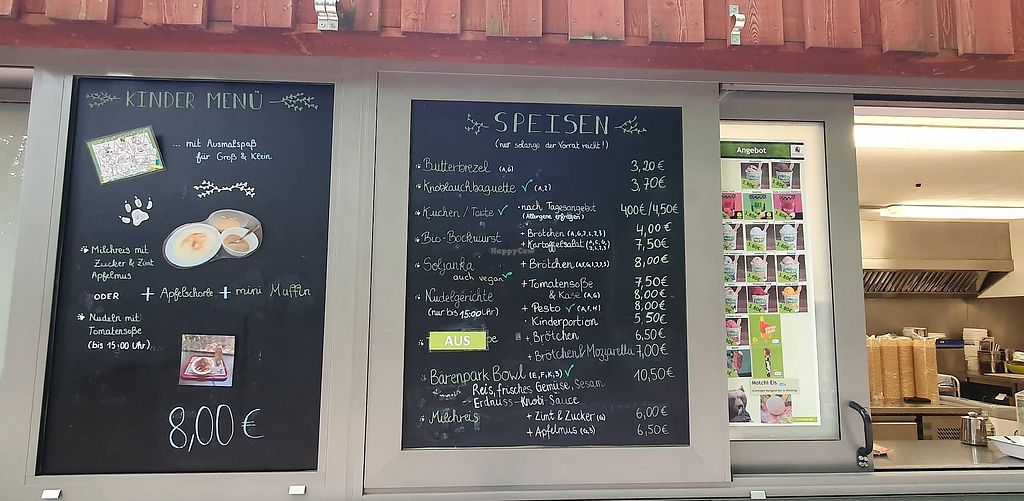 KINDER MENÜ
... mit Ausmalspaß
für Groß & Klein
* Milchreis mit
Zucker & Zimt
Apfelmus
ODER
+ Apfelschorle + mini Muffin
* Nudeln mit
Tomatensoße
(bis 15:00 Uhr)
8,00 €
SPEISEN
(nur solange der Vorrat reicht!)
* Butterbrezel (A,G) 3,20 €
* Knoblauchbaguette ✓ (A,2) 3,70 €
* Kuchen / Torte ✓ • nach Tagesangebot 4,00€/4,50€
(Allergene erfragen)
* Bio-Bockwurst + Brötchen 4,00 €
+ Kartoffelsalat 7,50 €
HappyCow
* Soljanka + Brötchen 8,00 €
auch vegan ✓
* Nudelgerichte + Tomatensoße 7,50 €
& Käse (A,G) 8,00 €
(nur bis 15:00 Uhr) + Pesto ✓ (A,F,H) 8,00 €
• Kinderportion 5,50 €
AUS + Brötchen 6,50 €
+ Brötchen & Mozzarella 7,00 €
* Bärenpark Bowl (E,F,K,3) ✓ 10,50 €
Reis, frisches Gemüse, Sesam
Erdnuss-Knobi-Sauce
* Milchreis + Zimt & Zucker (G) 6,00 €
+ Apfelmus (G,3) 6,50 €
Angebot
Motchi Eis